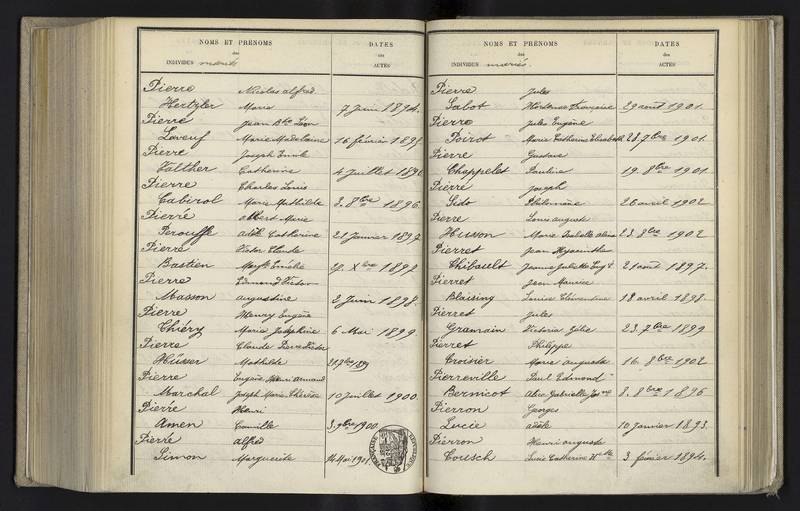 NOMS ET PRÉNOMS
des
INDIVIDUS mariés
DATES
des
ACTES
Pierre Nicolas Alfred
Hertzler Marie 7 Juin 1894.
Pierre Jean Bte Léon
Laveuf Marie Madelaine 16 février 1895
Pierre Joseph Emile
Valther Catherine 4 Juillet 1896
Pierre Charles Louis
Cabirol Marie Mathilde 3. 8bre 1896.
Pierre Albert Marie
Adèle Catherine 21 Janvier 1897
Pierre Victor Claude
Bastien Xbre
Pierre Edmond Victor
Masson Augustine 2 Juin 1898.
Pierre Henry Eugène
Thiéry Marie Joséphine 6 Mai 1899
Pierre Claude Pierre Victor
Hüsser Mathilde
Pierre Eugène Henri Armand
Marchal Joseph Marie Thérèse 10 Juillet 1900.
Pierre Henri
Amen Camille 3. 9bre 1900.
Pierre Alfred
Simon Marguerite Mai 1901
NOMS ET PRÉNOMS
des
INDIVIDUS mariés.
DATES
des
ACTES
Pierre Jules
Sabot Hortense Françoise 29 août 1901.
Pierre Jules Eugène
Poirot Marie Catherine Elisabeth 28. 7bre 1901.
Pierre Gustave
Chappelet Pauline 19. 8bre 1901.
Pierre Joseph
Philomène 26 avril 1902
Pierre Louis Auguste
Husson Marie Isabelle 23. 8bre 1902
Pierret Jean Hyacinthe
Thibault Jeanne Juliette 21 août 1897.
Pierret Jean Maurice
Blaising Louise Clémentine 18 avril 1898.
Pierret Jules
Gramain Victoria 23. 7bre 1899
Pierret Philippe
Croisier Marie Auguste 16. 8bre 1902
Pierreville Paul Edmond
Bernicot Gabrielle 8. 8bre 1896
Pierron Georges
Lucie Adèle 10 Janvier 1893.
Pierron Henri Auguste
Cousch Lucie Catherine 3 février 1894.